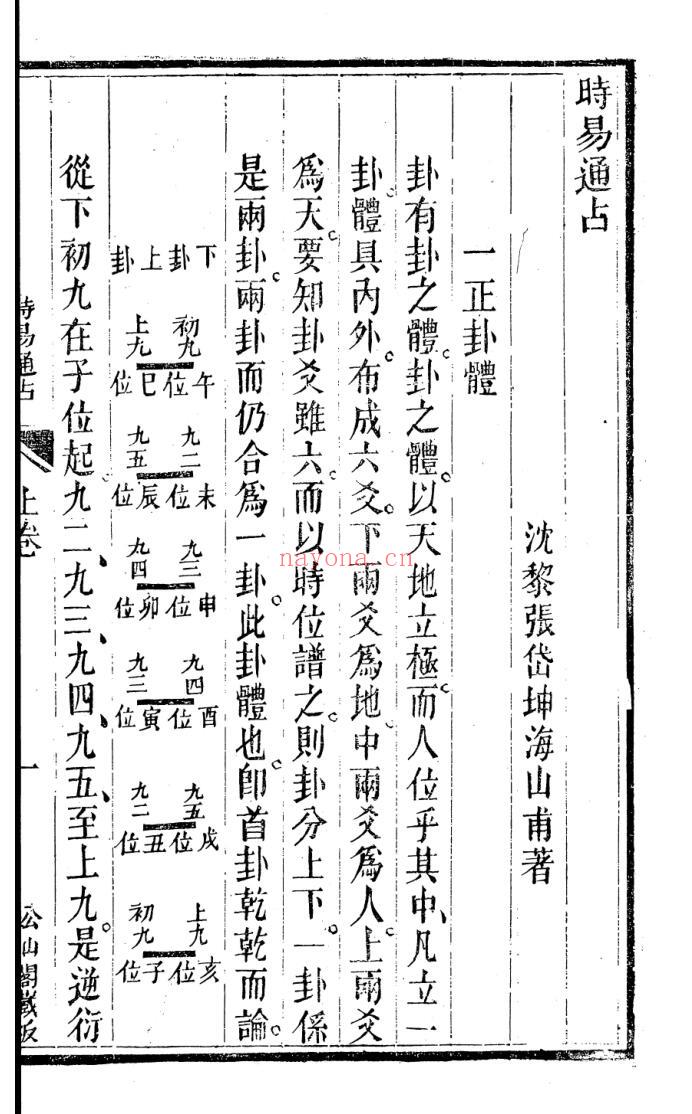 時易通占
沈黎張岱坤海山甫著
一正卦體
卦有卦之體。卦之體。以天地立極。而人位乎其中、凡立一
卦。體具內外。布成六爻。下兩爻爲地。中兩爻爲人。上兩爻
爲天。要知卦爻雖六。而以時位譜之。則卦分上下。一卦係
是兩卦。兩卦而仍合爲一卦。此卦體也。卽首卦乾乾而論。
下卦上卦
初九 午位 上九 巳位
九二 未位 九五 辰位
九三 申位 九四 卯位
九四 酉位 九三 寅位
九五 戌位 九二 丑位
上九 亥位 初九 子位
從下初九在子位起。九二、九三、九四、九五、至上九。是逆衍
時易通占
上卷
一
公山閣藏版
nayona.cn